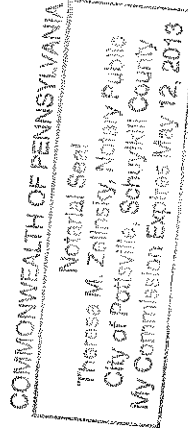 COMMONWEALTH OF PENNSYLVANIA
Notarial Seal
Theresa M. Zelinsky, Notary Public
City of Pottsville, Schuylkill County
My Commission Expires May 12, 2013